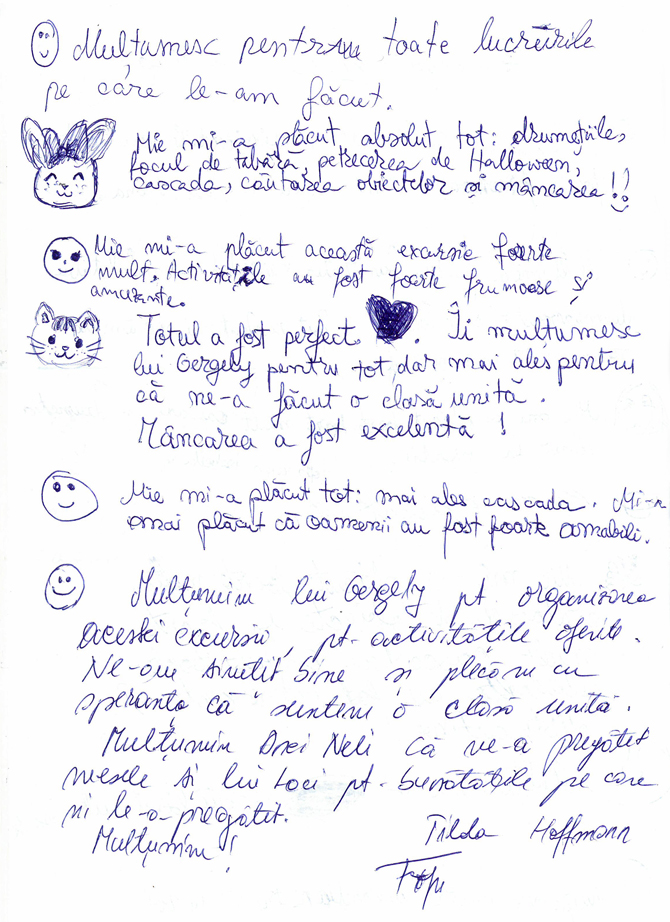 Mulțumesc pentru toate lucrurile
pe care le-am făcut.
Mie mi-a plăcut absolut tot: drumețiile,
focul de tabără, petrecerea de Halloween,
cascada, căutarea obiectelor și mâncarea!!
Mie mi-a plăcut această excursie foarte
mult. Activitățile au fost foarte frumoase și
amuzante.
Totul a fost perfect. Îi mulțumesc
lui Gergely pentru tot, dar mai ales pentru
că ne-a făcut o clasă unită.
Mâncarea a fost excelentă!
Mie mi-a plăcut tot: mai ales cascada. Mi-a
mai plăcut că oamenii au fost foarte amabili.
Mulțumim lui Gergely pt organizarea
acestei excursii, pt. activitățile oferite.
Ne-am simțit bine și plecăm cu
speranța că suntem o clasă unită.
Mulțumim Dnei Neli că ne-a pregătit
mesele și lui Loci pt. bunătățile pe care
ni le-a pregătit.
Mulțumim!
Tilda Hoffmann